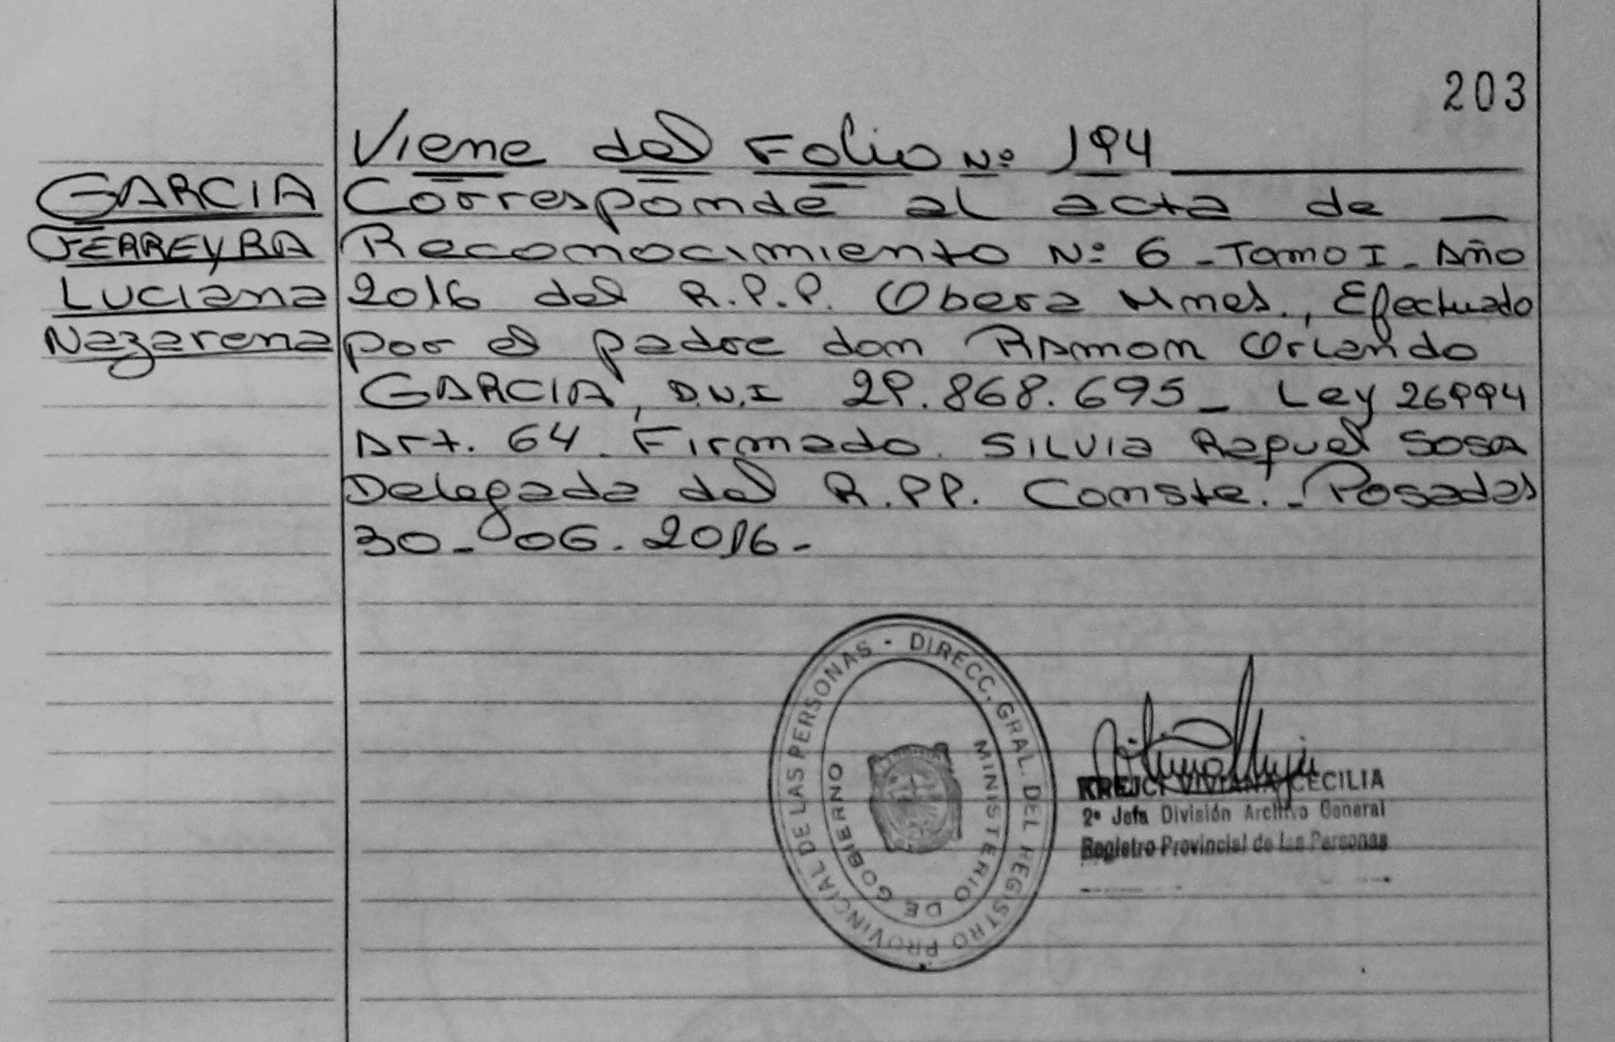 203
Viene del Folio Nº 194
GARCIA
FERREYRA
Luciana
Nazarena
Corresponde al acta de
Reconocimiento Nº 6 - Tomo I - Año
2016 del R.P.P. Obera Mnes., Efectuado
por el padre don Ramon Orlando
GARCIA, D.N.I 29.868.695 - Ley 26994
Art. 64. Firmado. SILVIA Raquel SOSA
Delegada del R.PP. Conste. - Posadas
30-06.2016-
DIRECC. GRAL. DEL REGISTRO PROVINCIAL DE LAS PERSONAS -
MINISTERIO DE GOBIERNO
KREJCI VIVIANA CECILIA
2º Jefa División Archivo General
Registro Provincial de las Personas